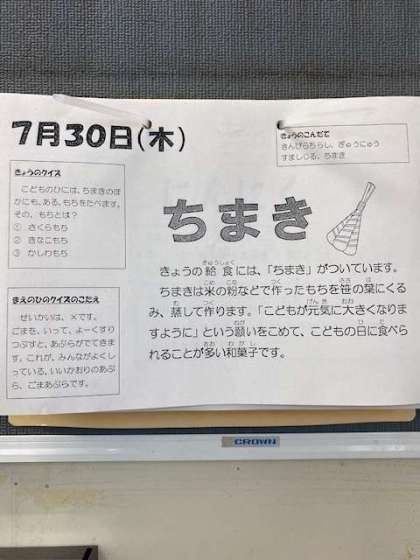 7月30日(木)
きょうのこんだて
きんぴらちらし、ぎゅうにゅう
すましじる、ちまき
きょうのクイズ
こどものひには、ちまきのほ
かにも、ある、もちをたべます。
その、もちとは？
① さくらもち
② きなこもち
③ かしわもち
ちまき
きょうの給食には、「ちまき」がついています。
ちまきは米の粉などで作ったもちを笹の葉にくる
み、蒸して作ります。「こどもが元気に大きくなりま
すように」という願いをこめて、こどもの日に食べら
れることが多い和菓子です。
まえのひのクイズのこたえ
せいかいは、×です。
ごまを、いって、よーくすり
つぶすと、あぶらがでてきま
す。これが、みんながよくし
っている、いいかおりのあぶ
ら、ごまあぶらです。
CROWN